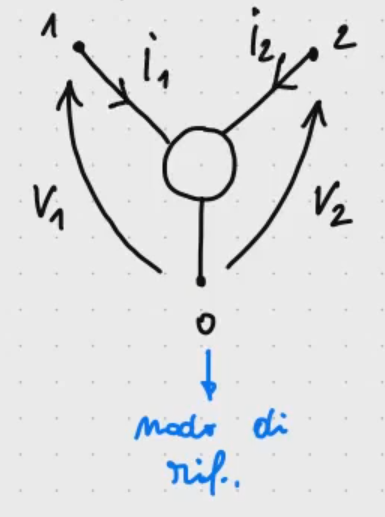 1 i₁ i₂ 2
V₁ V₂
0
nodo di
rif.